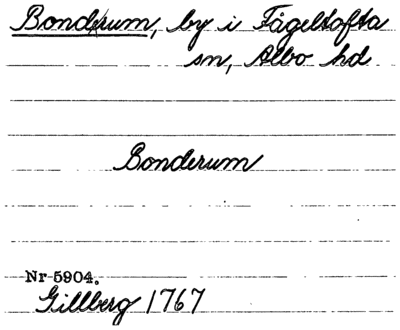 Bonderum, by i Fågeltofta
sn, Albo hd
Bonderum
Nr 5904.
Gillberg 1767